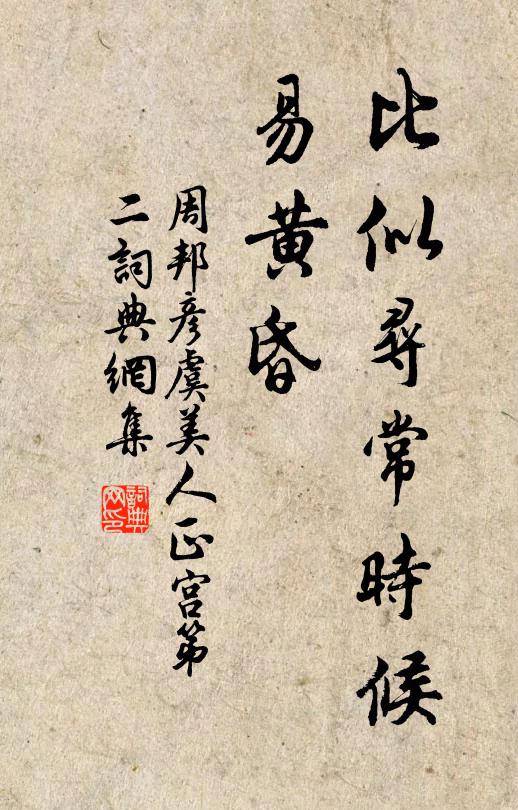 比似尋常時候
易黄昏
周邦彦虞美人正宫第
二詞典網集
詞典
网印